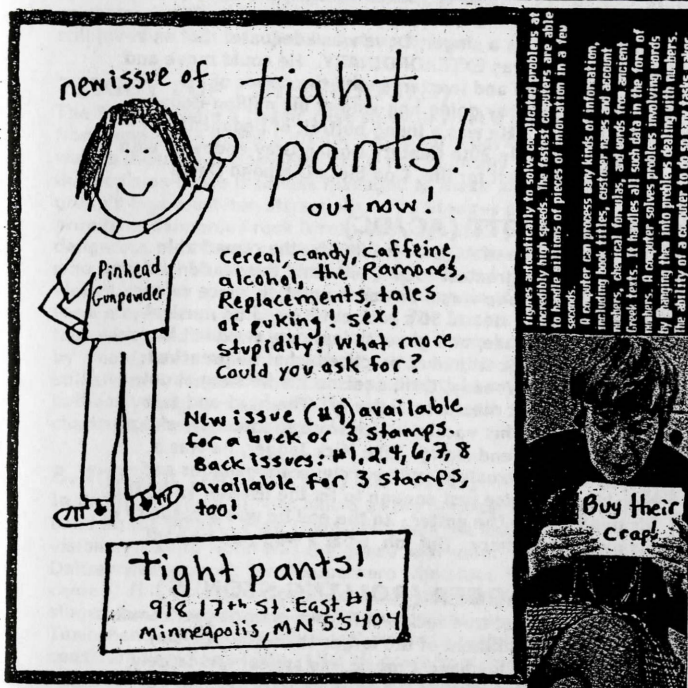 new issue of
tight
pants!
out now!
Pinhead
Gunpowder
cereal, candy, caffeine,
alcohol, the Ramones,
Replacements, tales
of puking! sex!
Stupidity! What more
could you ask for?
New issue (#9) available
for a buck or 3 stamps.
Back issues: #1, 2, 4, 6, 7, 8
available for 3 stamps,
too!
Tight pants!
918 17th St. East #1
Minneapolis, MN 55404
figures automatically to solve complicated problems at
incredibly high speeds. The fastest computers are able
to handle millions of pieces of information in a few
seconds.
A computer can process many kinds of information,
including book titles, customer names and account
numbers, chemical formulas, and words from ancient
Greek texts. It handles all such data in the form of
numbers. A computer solves problems involving words
by changing them into problems dealing with numbers.
The ability of a computer to do so many tasks makes
Buy their
crap!